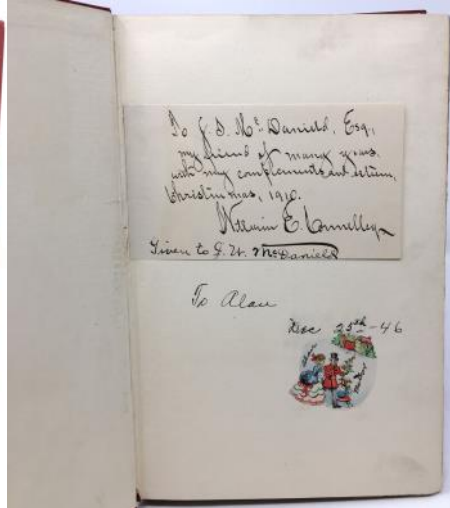 To J. S. McDaniels, Esq,
my friend of many years,
with my compliments and esteem,
Christmas, 1910.
William E. Connelley
Given to J. W. McDaniels
To Alan
Dec 25th-46